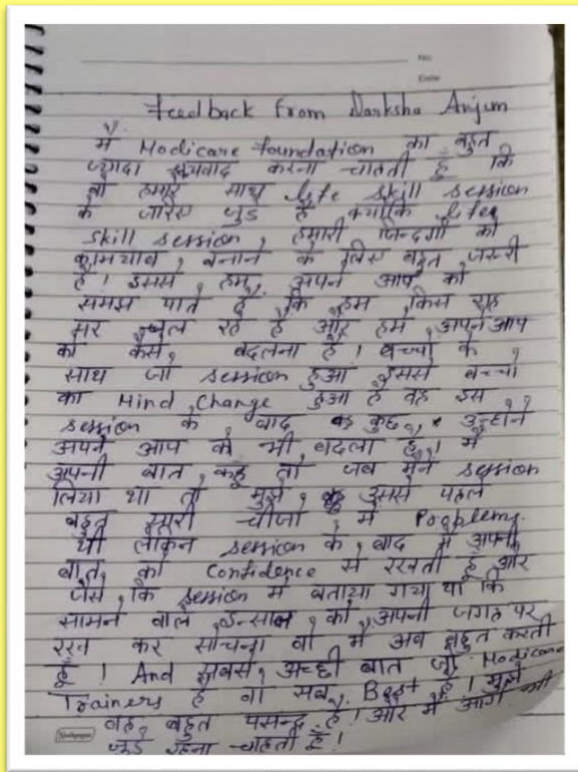 No.
Date
Feedback from Darksha Anjum
मैं Modicare foundation का बहुत
ज्यादा धन्यवाद करना चाहती हूँ कि
वो हमारे साथ life skill session
के जरिए जुड़े हैं क्योंकि life
skill session, हमारी जिन्दगी को
कामयाब बनाने के लिए बहुत जरूरी
है! इससे हम अपने आप को
समझ पाते हैं कि हम किस राह
पर चल रहे हैं और हमें अपने आप
को कैसे बदलना है! बच्चों के
साथ जो session हुआ इससे बच्चों
का Mind Change हुआ है वह इस
session के बाद कुछ उन्होंने
अपने आप को भी बदला है! मैं
अपनी बात कहूं तो जब मैंने session
लिया था तो मुझे उससे पहले
बहुत सारी चीजों में Problems
थी लेकिन session के बाद मैं अपनी
बात को Confidence से रखती हूँ और
जैसे कि session में बताया गया था कि
सामने वाले इन्सान को अपनी जगह पर
रख कर सोचना वो मैं अब बहुत करती
हूँ! And सबसे अच्छी बात जो Modicare
Trainers है वो सब Best है! मुझे
वह बहुत पसन्द है! और मैं आगे भी
जुड़े रहना चाहती हूँ!